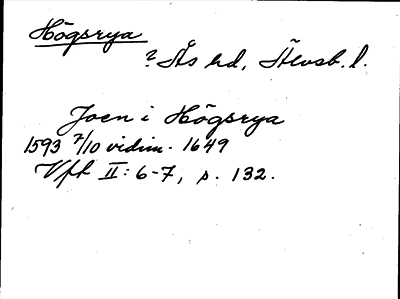 Högsrya
? Ås hd, Älvsb. l.
Joen i Högsrya
1593 7/10 vidim. 1649
Vft II: 6-7, s. 132.